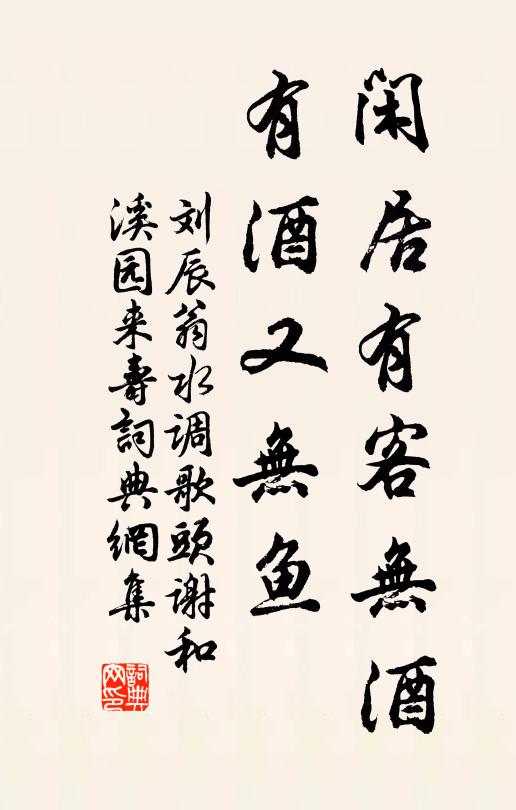 闲居有客無酒
有酒又無鱼
刘辰翁水调歌頭谢和
溪园来壽詞典網集
詞典
网印